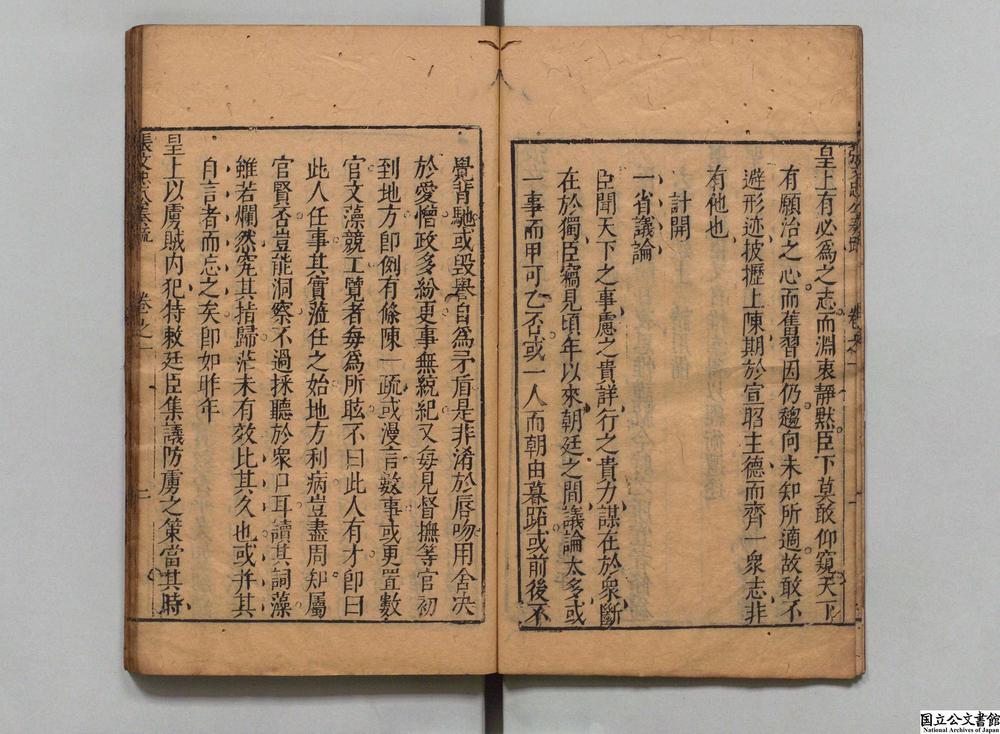 皇上有必為之志而淵衷靜默臣下莫敢仰窺天下
有願治之心而舊習因仍趨向未知所適故敢不
避形迹披攊上陳期於宣昭主德而齊一衆志非
有他也
計開
一省議論
臣聞天下之事慮之貴詳行之貴力謀在於衆斷
在於獨臣竊見頃年以來朝廷之間議論太多或
一事而甲可乙否或一人而朝由暮跖或前後不
覺背馳或毀譽自為矛盾是非淆於唇吻用舍决
於愛憎政多紛更事無統紀又每見督撫等官初
到地方卽例有條陳一疏或漫言數事或更置數
官文藻競工覽者每為所眩不曰此人有才卽曰
此人任事其實蒞任之始地方利病豈盡周知屬
官賢否豈能洞察不過採聽於衆口耳讀其詞藻
雖若爛然究其指歸茫未有效比其久也或并其
自言者而忘之矣卽如昨年
皇上以虜賊内犯特敕廷臣集議防虜之策當其時
張文忠公奏疏
卷之一
二
国立公文書館
National Archives of Japan